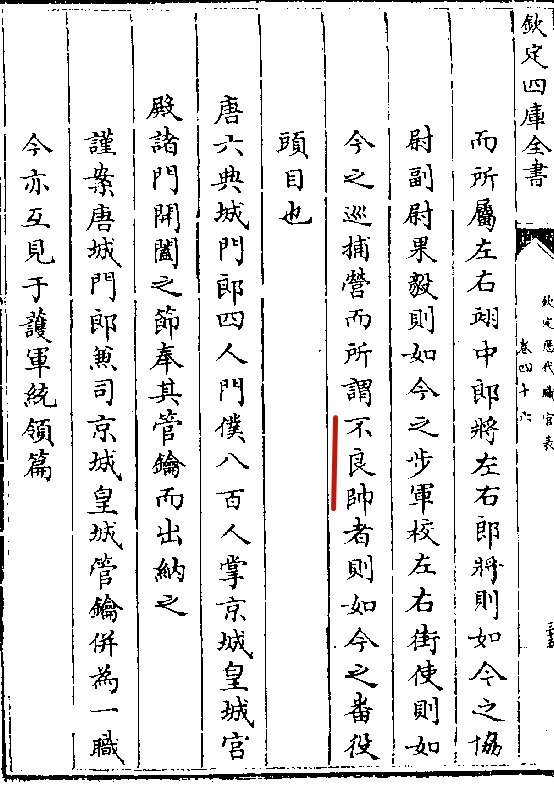 欽定四庫全書
欽定歷代職官表
卷四十六
而所屬左右翊中郎將左右郎將則如今之協
尉副尉果毅則如今之步軍校左右街使則如
今之巡捕營而所謂不良帥者則如今之番役
頭目也
唐六典城門郎四人門僕八百人掌京城皇城宫
殿諸門開闔之節奉其管鑰而出納之
謹案唐城門郎兼司京城皇城管鑰併為一職
今亦互見于䕶軍統領篇